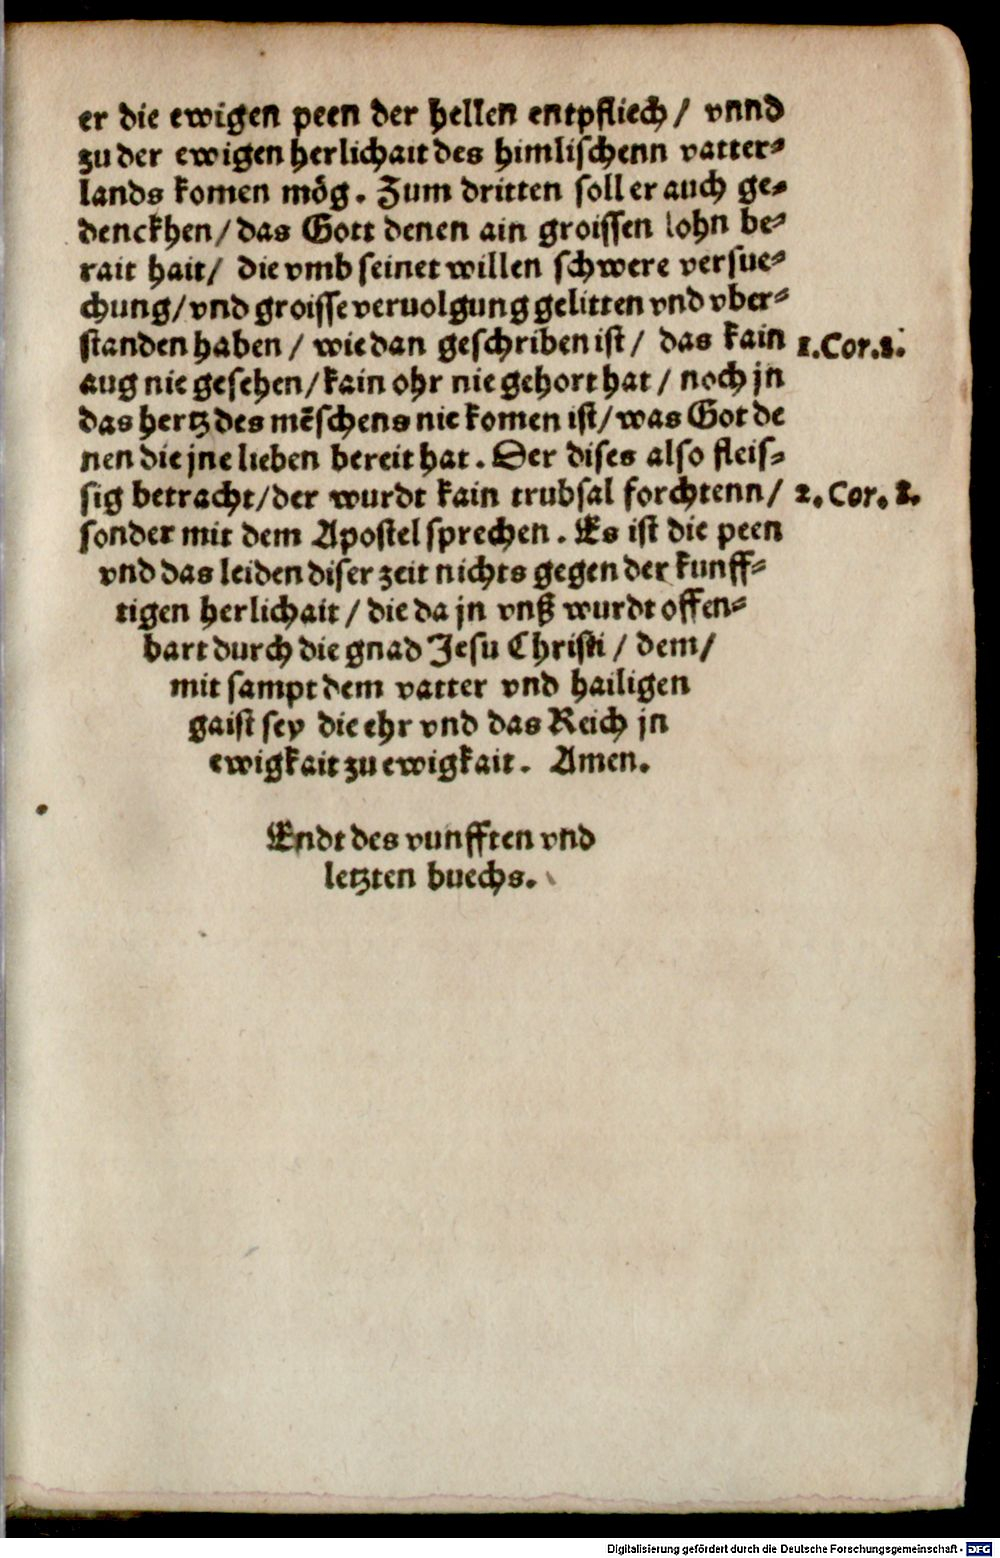 er die ewigen peen der hellen entpfliech / vnnd
zu der ewigen herlichait des himlischenn vatter⸗
lands komen mög. Zum dritten soll er auch ge⸗
denckhen / das Gott denen ain groissen lohn be⸗
rait hait / die vmb seinet willen schwere versue⸗
chung / vnd groisse veruolgung gelitten vnd vber⸗
standen haben / wie dan geschriben ist / das kain 1.Cor.2.
aug nie gesehen / kain ohr nie gehort hat / noch jn
das hertz des mēschens nie komen ist / was Got de
nen die jne lieben bereit hat. Der dises also fleis⸗
sig betracht / der wurdt kain trubsal forchtenn / 2. Cor. 8.
sonder mit dem Apostel sprechen. Es ist die peen
vnd das leiden diser zeit nichts gegen der kunff⸗
tigen herlichait / die da jn vnß wurdt offen⸗
bart durch die gnad Jesu Christi / dem /
mit sampt dem vatter vnd hailigen
gaist sey die ehr vnd das Reich jn
ewigkait zu ewigkait. Amen.
Endt des vunfften vnd
letzten buechs.
Digitalisierung gefördert durch die Deutsche Forschungsgemeinschaft - DFG